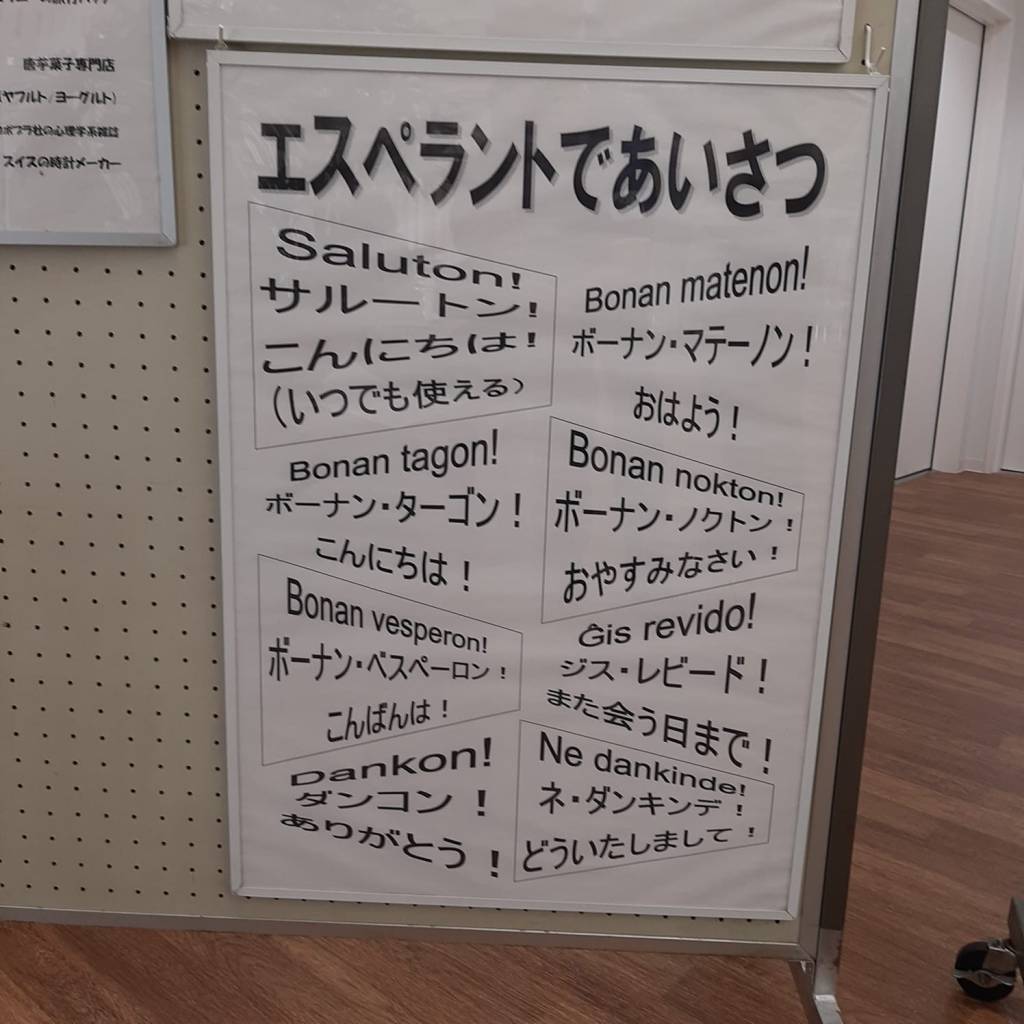 唐芋菓子専門店
ヤフルト/ヨーグルト)
ポプラ社の心理学系雑誌
スイスの時計メーカー
エスペラントであいさつ
Saluton!
サルートン!
こんにちは!
(いつでも使える)
Bonan matenon!
ボーナン・マテーノン!
おはよう!
Bonan tagon!
ボーナン・ターゴン!
こんにちは!
Bonan nokton!
ボーナン・ノクトン!
おやすみなさい!
Bonan vesperon!
ボーナン・ベスペーロン!
こんばんは!
Ĝis revido!
ジス・レビード!
また会う日まで!
Dankon!
ダンコン!
ありがとう!
Ne dankinde!
ネ・ダンキンデ!
どういたしまして!